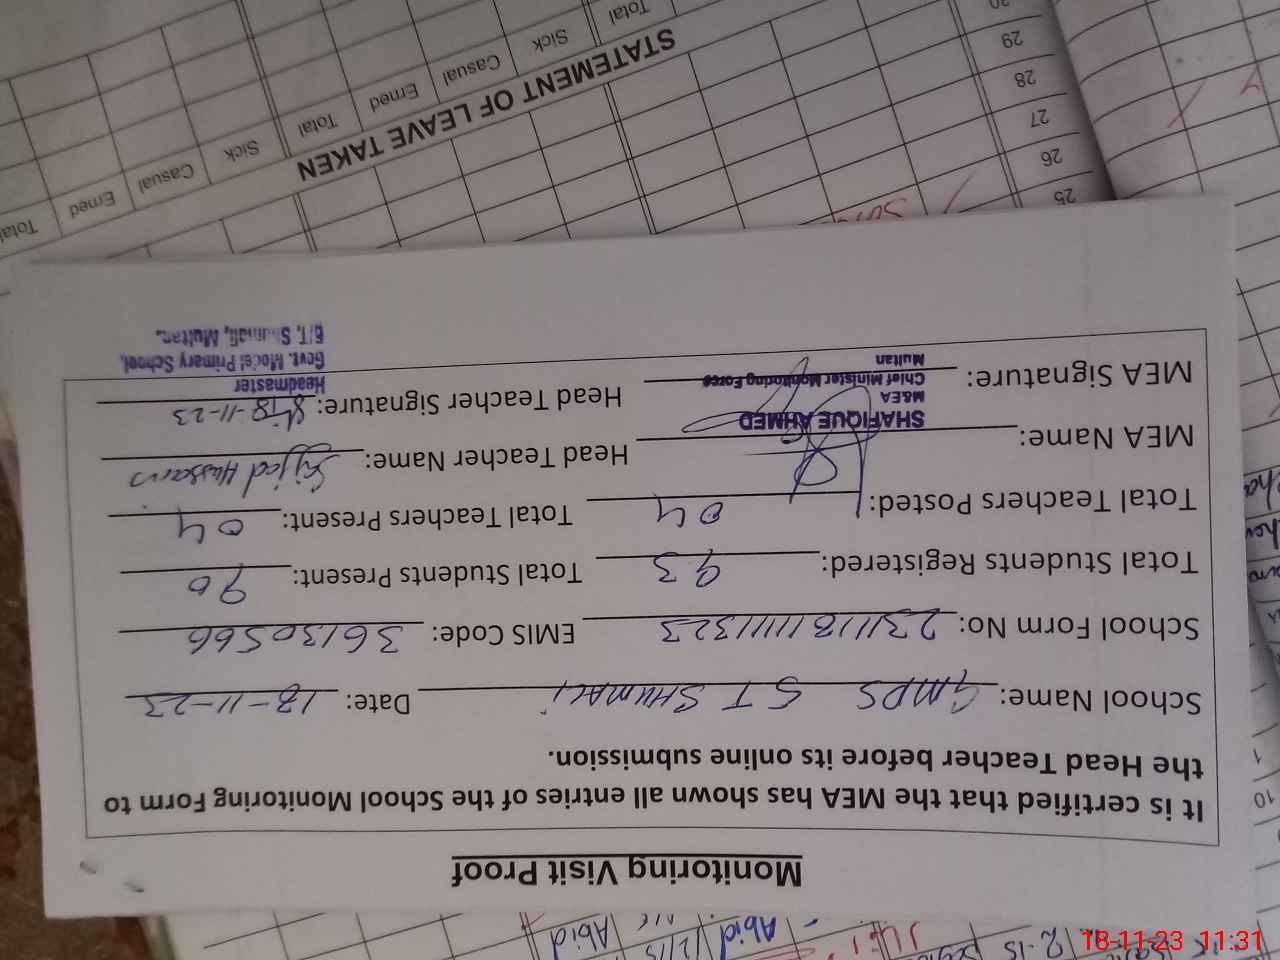 Monitoring Visit Proof
It is certified that the MEA has shown all entries of the School Monitoring Form to
the Head Teacher before its online submission.
School Name: GMPS 5T SHUMALI Date: 18-11-23
School Form No: EMIS Code: 36130566
Total Students Registered: 93 Total Students Present: 90
Total Teachers Posted: 04 Total Teachers Present: 04
MEA Name: Head Teacher Name: Sajjad Hussain
SHAFIQUE AHMED
M&EA
Chief Minister Monitoring Force
Multan
MEA Signature: Head Teacher Signature: 18-11-23
Headmaster
Govt. Model Primary School,
5/T, Shumali, Multan.
STATEMENT OF LEAVE TAKEN
Total Erned Casual Sick Total Erned Casual Sick Total
25
26
27
28
29
30
1
10
Abid Abid
18-11-23 11:31